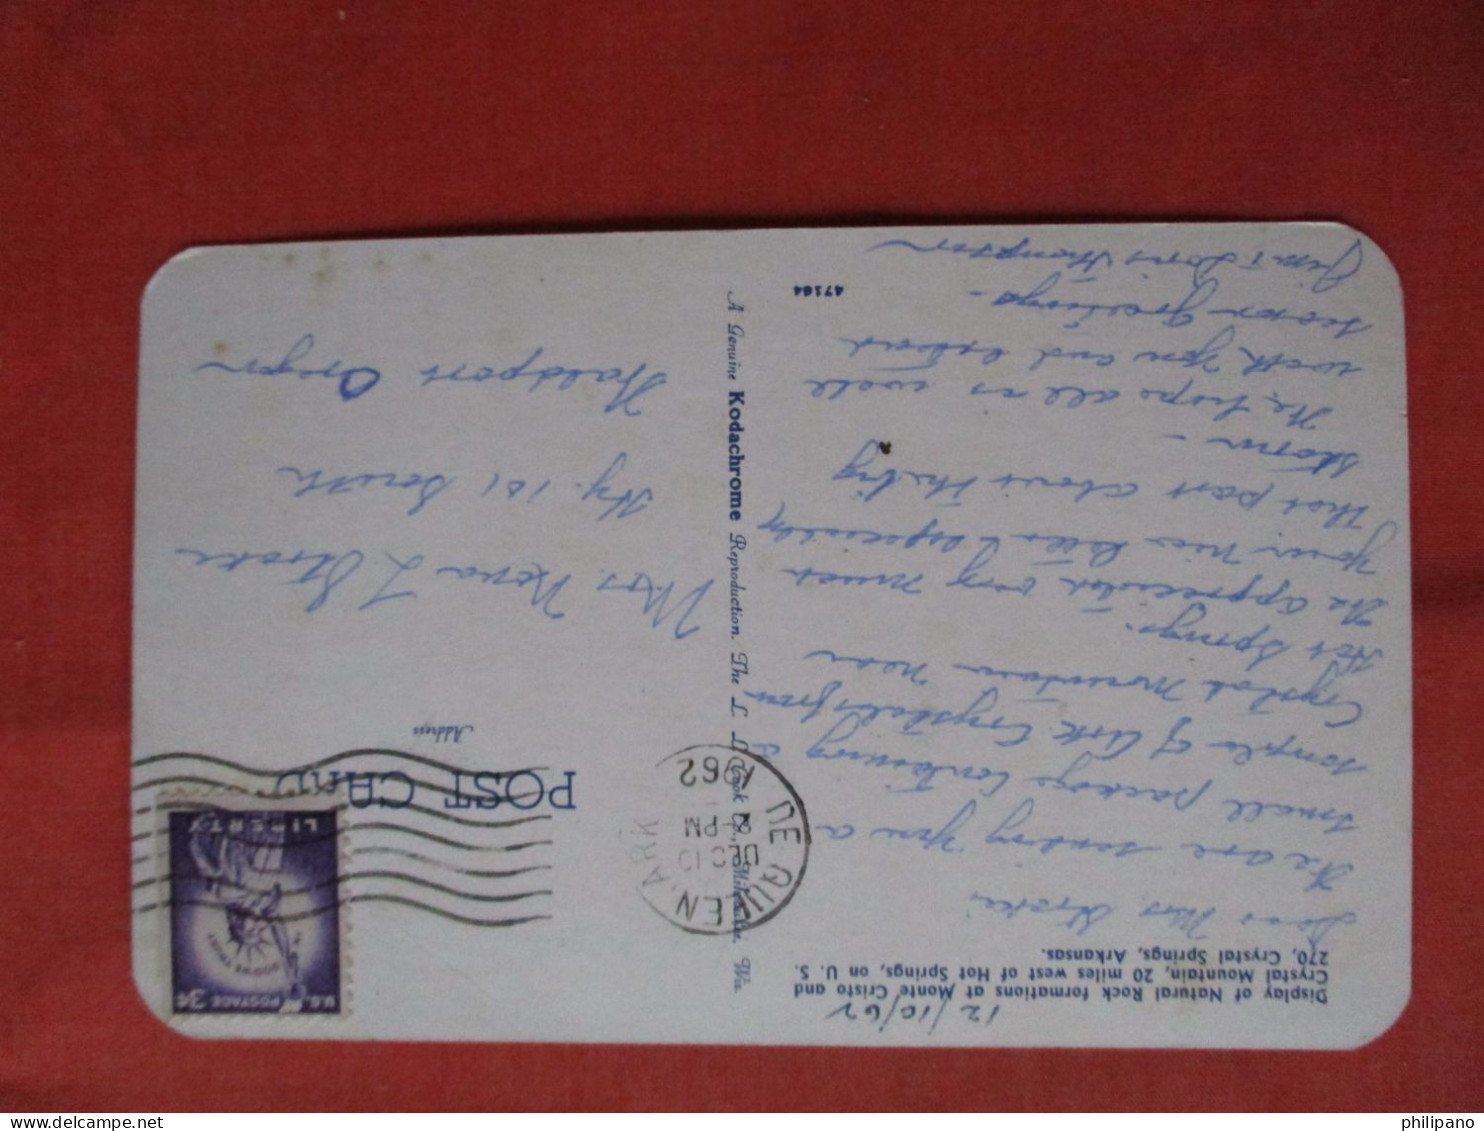 12/10/62
Display of Natural Rock formations at Monte Cristo and
Crystal Mountain, 20 miles west of Hot Springs, on U. S.
270, Crystal Springs, Arkansas.
Dear Mrs
We are sending you a
small package containing a
sample of little Crystals from
Crystal Mountain near
Hot Springs.
We appreciated very much
your nice letter especially
that part about the big
storm -
We hope all is well
with you and extend
season greetings -
Jim & Doris Thompson
47164
A Genuine Kodachrome Reproduction. The L. L. Cook Co., Milwaukee, Wis.
POST CARD
Address
DE QUEEN, ARK
DEC 10
PM
1962
U.S. POSTAGE 3¢
IN GOD WE TRUST
LIBERTY
Mrs. Nena L.
Hy. 101 South
Waldport Oregon
philipano